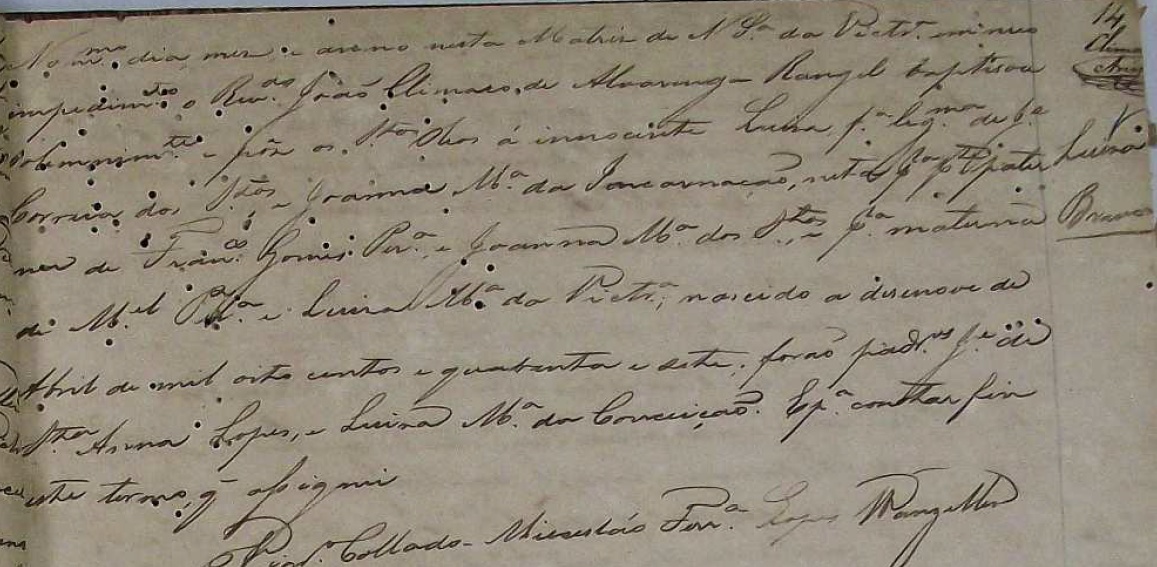 No m.mo dia, mez, e anno nesta Matriz de N. S.ª da Victr.ª em meu
impedim.to o Rev.do João Climaco de Alvarenga Rangel baptisou
solemnem.te e pôz os S.tos Oleos á innocente Luiza f.ª leg.ma de J.e
Correia dos S.tos, e Joanna M.ª da Incarnação, neta p.
ner de Fran.co Gomes Per.ª, e Joanna M.ª dos S.tos, e p.ª materna
de M.el e Luiza M.ª da Victr.ª, nascido a desenove de
Abril de mil oito centos e quarenta e sete, forão padr.os J.e de
S.ta Anna Lopes, e Luiza M.ª da Conceição. E p.ª constar fiz
este termo, q̃ assignei
Collado Missesláo Ferr.ª Lopes Wanzeller
14
Luiza
Branca